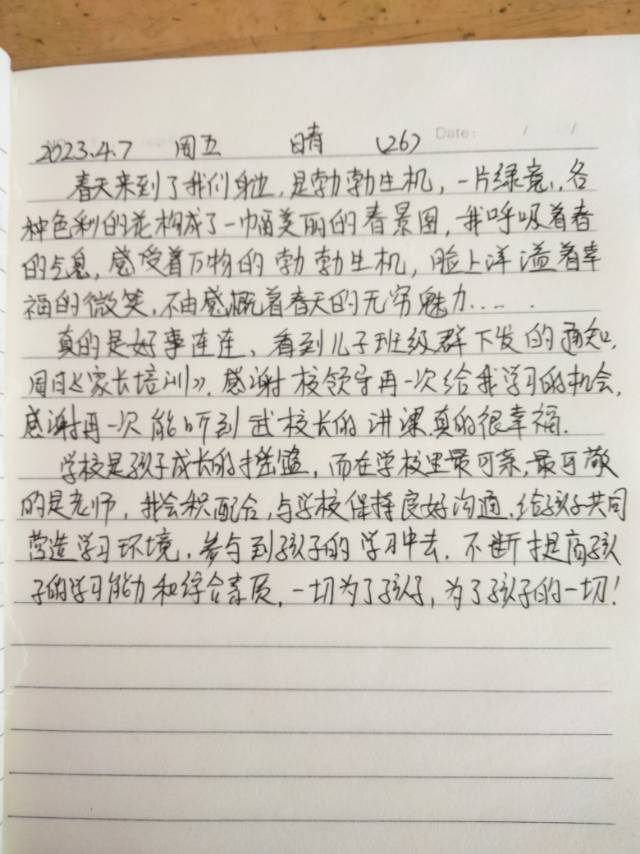 2023.4.7 周五 晴 (26) Date: / /
春天来到了我们身边,是勃勃生机,一片绿意,各
种色彩的花构成了一幅美丽的春景图,我呼吸着春
的气息,感受着万物的勃勃生机,脸上洋溢着幸
福的微笑,不由感慨着春天的无穷魅力......
真的是好事连连、看到儿子班级群下发的通知,
周日《家长培训》,感谢校领导再一次给我学习的机会,
感谢再一次能听到武校长的讲课,真的很幸福.
学校是孩子成长的摇篮,而在学校里最可亲,最可敬
的是老师,我会积配合,与学校保持良好沟通,给孩子共同
营造学习环境,参与到孩子的学习中去.不断提高孩
子的学习能力和综合素质,一切为了孩子,为了孩子的一切!